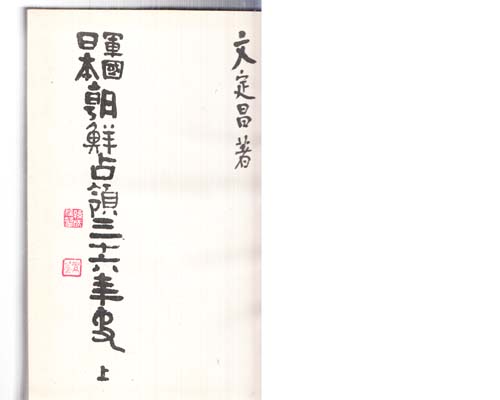 文定昌著
軍國日本朝鮮占領三十六年史
上